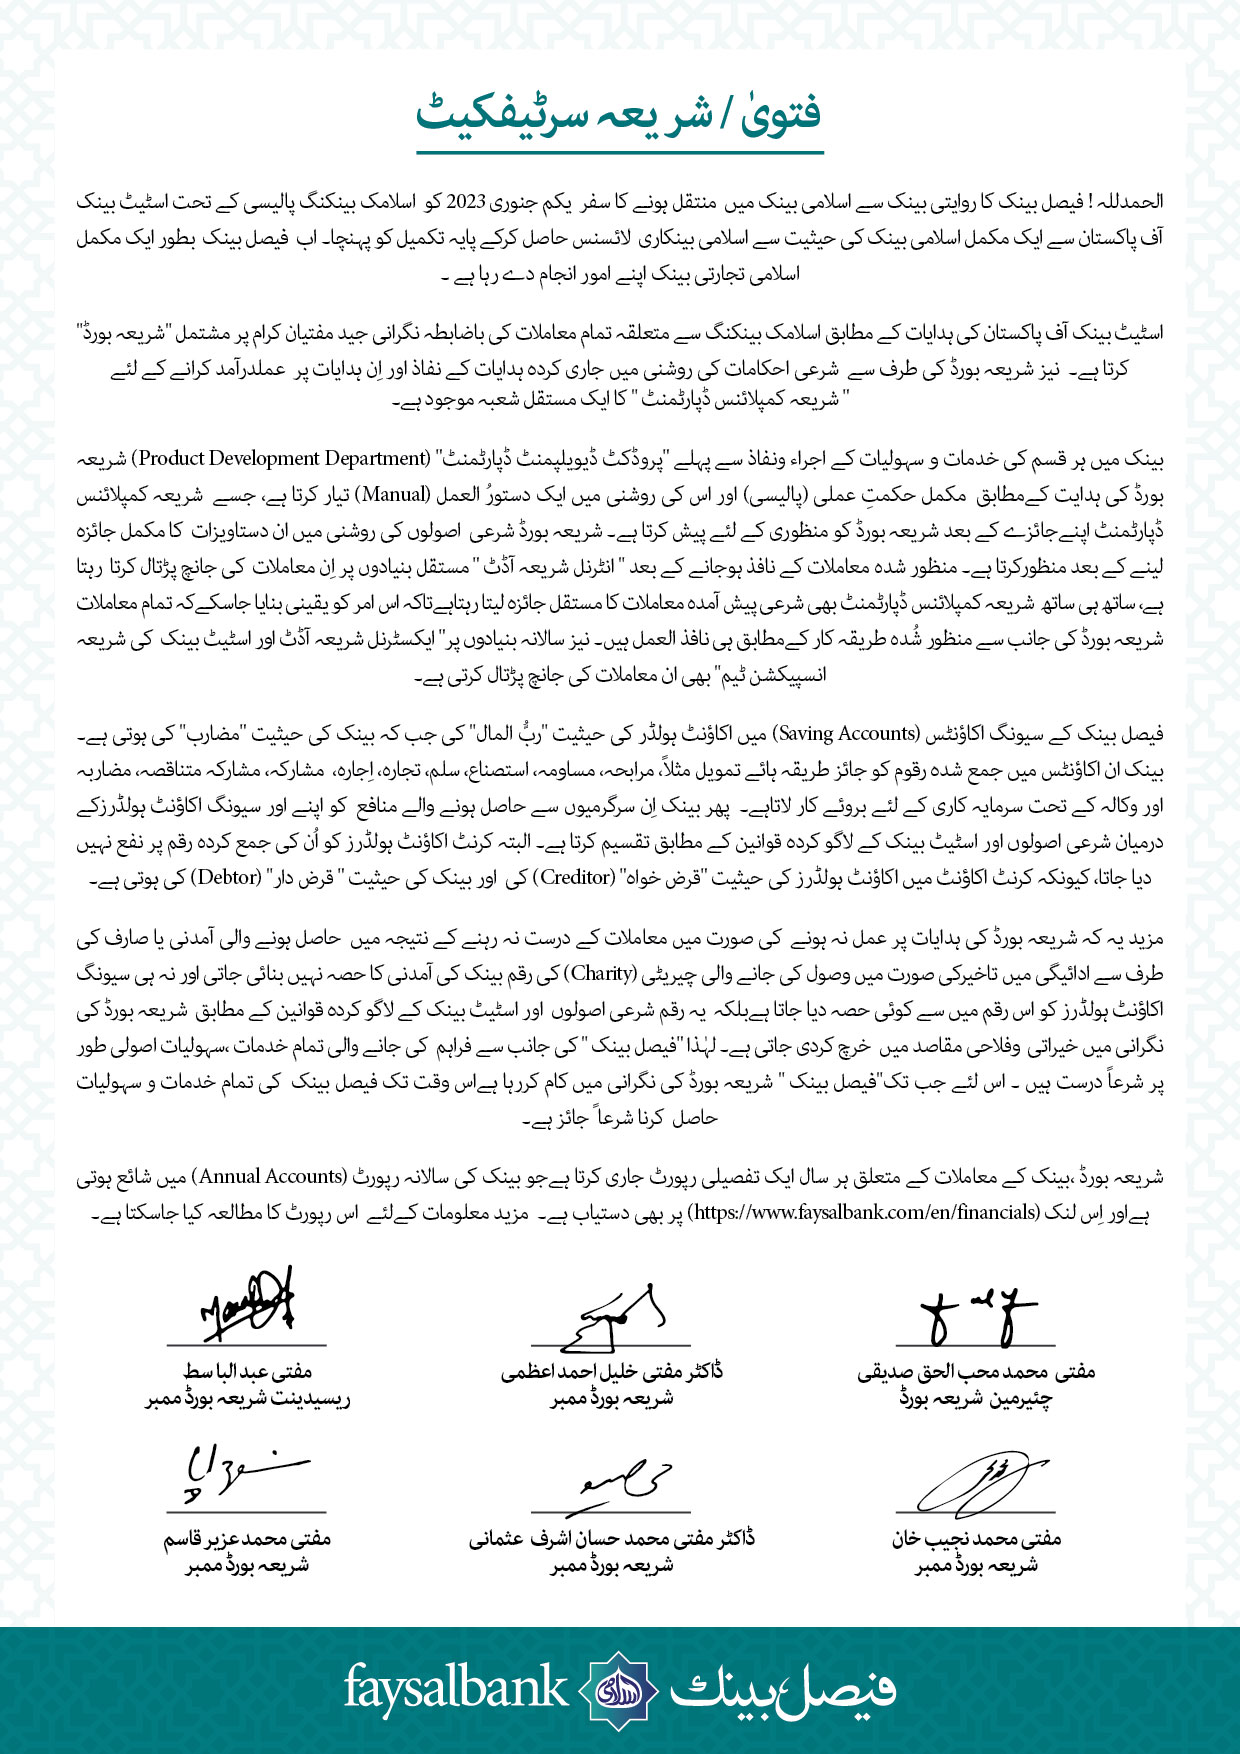 فتویٰ / شریعہ سرٹیفکیٹ
الحمدللہ ! فیصل بینک کا روایتی بینک سے اسلامی بینک میں منتقل ہونے کا سفر یکم جنوری 2023 کو اسلامک بینکنگ پالیسی کے تحت اسٹیٹ بینک
آف پاکستان سے ایک مکمل اسلامی بینک کی حیثیت سے اسلامی بینکاری لائسنس حاصل کرکے پایہ تکمیل کو پہنچا۔ اب فیصل بینک بطور ایک مکمل
اسلامی تجارتی بینک اپنے امور انجام دے رہا ہے ۔
اسٹیٹ بینک آف پاکستان کی ہدایات کے مطابق اسلامک بینکنگ سے متعلقہ تمام معاملات کی باضابطہ نگرانی جید مفتیان کرام پر مشتمل "شریعہ بورڈ"
کرتا ہے۔ نیز شریعہ بورڈ کی طرف سے شرعی احکامات کی روشنی میں جاری کردہ ہدایات کے نفاذ اور اِن ہدایات پر عملدرآمد کرانے کے لئے
" شریعہ کمپلائنس ڈپارٹمنٹ " کا ایک مستقل شعبہ موجود ہے۔
بینک میں ہر قسم کی خدمات و سہولیات کے اجراء ونفاذ سے پہلے "پروڈکٹ ڈیویلپمنٹ ڈپارٹمنٹ" (Product Development Department) شریعہ
بورڈ کی ہدایت کےمطابق مکمل حکمتِ عملی (پالیسی) اور اس کی روشنی میں ایک دستورُ العمل (Manual) تیار کرتا ہے، جسے شریعہ کمپلائنس
ڈپارٹمنٹ اپنےجائزے کے بعد شریعہ بورڈ کو منظوری کے لئے پیش کرتا ہے۔ شریعہ بورڈ شرعی اصولوں کی روشنی میں ان دستاویزات کا مکمل جائزہ
لینے کے بعد منظورکرتا ہے۔ منظور شدہ معاملات کے نافذ ہوجانے کے بعد " انٹرنل شریعہ آڈٹ " مستقل بنیادوں پر اِن معاملات کی جانچ پڑتال کرتا رہتا
ہے، ساتھ ہی ساتھ شریعہ کمپلائنس ڈپارٹمنٹ بھی شرعی پیش آمدہ معاملات کا مستقل جائزہ لیتا رہتاہےتاکہ اس امر کو یقینی بنایا جاسکےکہ تمام معاملات
شریعہ بورڈ کی جانب سے منظور شُدہ طریقہ کار کےمطابق ہی نافذ العمل ہیں۔ نیز سالانہ بنیادوں پر" ایکسٹرنل شریعہ آڈٹ اور اسٹیٹ بینک کی شریعہ
انسپیکشن ٹیم" بھی ان معاملات کی جانچ پڑتال کرتی ہے۔
فیصل بینک کے سیونگ اکاؤنٹس (Saving Accounts) میں اکاؤنٹ ہولڈر کی حیثیت "ربُّ المال" کی جب کہ بینک کی حیثیت "مضارب" کی ہوتی ہے۔
بینک ان اکاؤنٹس میں جمع شدہ رقوم کو جائز طریقہ ہائے تمویل مثلاً، مرابحہ، مساومہ، استصناع، سلم، تجارہ، اِجارہ، مشارکہ، مشارکہ متناقصہ، مضاربہ
اور وکالہ کے تحت سرمایہ کاری کے لئے بروئے کار لاتاہے۔ پھر بینک اِن سرگرمیوں سے حاصل ہونے والے منافع کو اپنے اور سیونگ اکاؤنٹ ہولڈرزکے
درمیان شرعی اصولوں اور اسٹیٹ بینک کے لاگو کردہ قوانین کے مطابق تقسیم کرتا ہے۔ البتہ کرنٹ اکاؤنٹ ہولڈرز کو اُن کی جمع کردہ رقم پر نفع نہیں
دیا جاتا، کیونکہ کرنٹ اکاؤنٹ میں اکاؤنٹ ہولڈرز کی حیثیت "قرض خواہ" (Creditor) کی اور بینک کی حیثیت " قرض دار" (Debtor) کی ہوتی ہے۔
مزید یہ کہ شریعہ بورڈ کی ہدایات پر عمل نہ ہونے کی صورت میں معاملات کے درست نہ رہنے کے نتیجہ میں حاصل ہونے والی آمدنی یا صارف کی
طرف سے ادائیگی میں تاخیرکی صورت میں وصول کی جانے والی چیریٹی (Charity) کی رقم بینک کی آمدنی کا حصہ نہیں بنائی جاتی اور نہ ہی سیونگ
اکاؤنٹ ہولڈرز کو اس رقم میں سے کوئی حصہ دیا جاتا ہےبلکہ یہ رقم شرعی اصولوں اور اسٹیٹ بینک کے لاگو کردہ قوانین کے مطابق شریعہ بورڈ کی
نگرانی میں خیراتی وفلاحی مقاصد میں خرچ کردی جاتی ہے۔ لہٰذا "فیصل بینک " کی جانب سے فراہم کی جانے والی تمام خدمات ،سہولیات اصولی طور
پر شرعاً درست ہیں ۔ اس لئے جب تک"فیصل بینک " شریعہ بورڈ کی نگرانی میں کام کررہا ہےاس وقت تک فیصل بینک کی تمام خدمات و سہولیات
حاصل کرنا شرعاً جائز ہے۔
شریعہ بورڈ ،بینک کے معاملات کے متعلق ہر سال ایک تفصیلی رپورٹ جاری کرتا ہےجو بینک کی سالانہ رپورٹ (Annual Accounts) میں شائع ہوتی
ہےاور اِس لنک (https://www.faysalbank.com/en/financials) پر بھی دستیاب ہے۔ مزید معلومات کےلئے اس رپورٹ کا مطالعہ کیا جاسکتا ہے۔
مفتی محمد محب الحق صدیقی
چئیرمین شریعہ بورڈ
ڈاکٹر مفتی خلیل احمد اعظمی
شریعہ بورڈ ممبر
مفتی عبد الباسط
ریسیدینت شریعہ بورڈ ممبر
مفتی محمد نجیب خان
شریعہ بورڈ ممبر
ڈاکٹر مفتی محمد حسان اشرف عثمانی
شریعہ بورڈ ممبر
مفتی محمد عزیر قاسم
شریعہ بورڈ ممبر
faysalbank اسلامی فیصل بینک